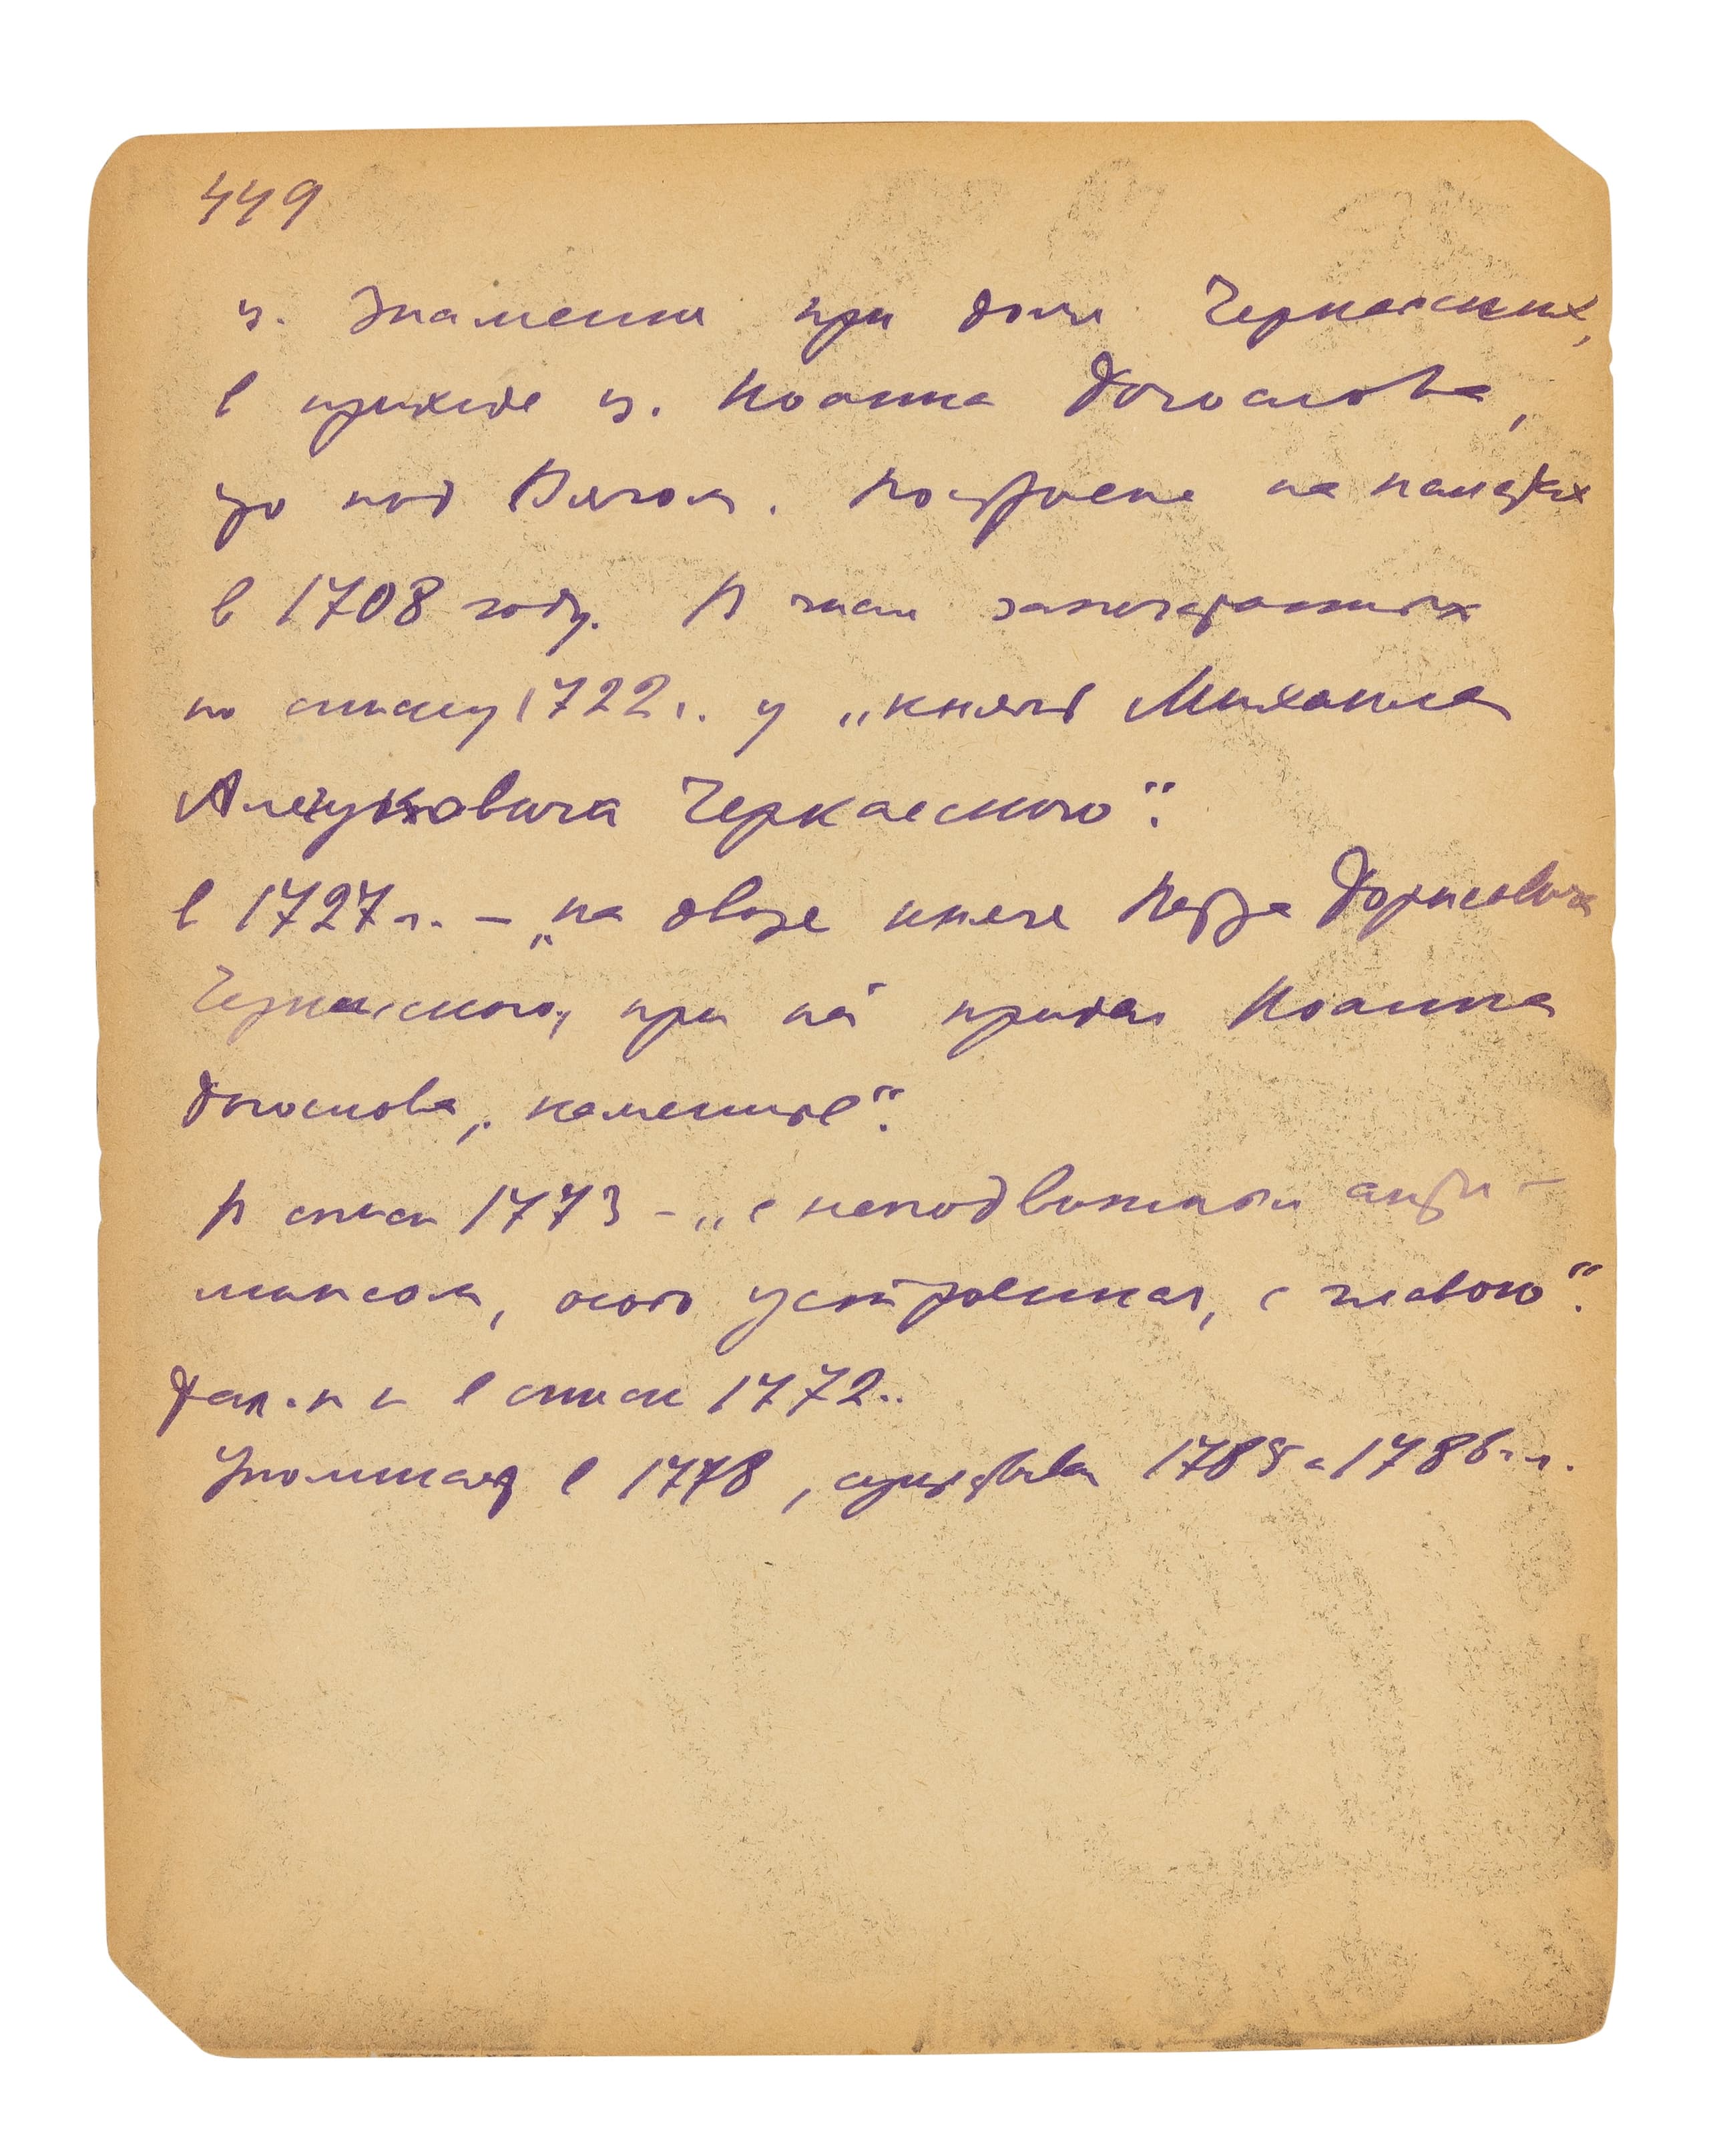 449
ц. Знамения при доме Черкасских,
в приходе ц. Иоанна Богослова,
что под Вязом. Построена на палатах
в 1708 году. В числе запечатанных
по списку 1722 г. у „князя Михаила
Алегуковича Черкасского“.
в 1727 г. – „на дворе князя Петра Борисовича
Черкасского, при ней придел Иоанна
Богослова, каменные“.
В списке 1773 – „с неподвижным анти-
минсом, особо устроенная, с главою“.
и в списке 1772.
Упоминается в 1778, существовала 1785 и 1786 г.г.